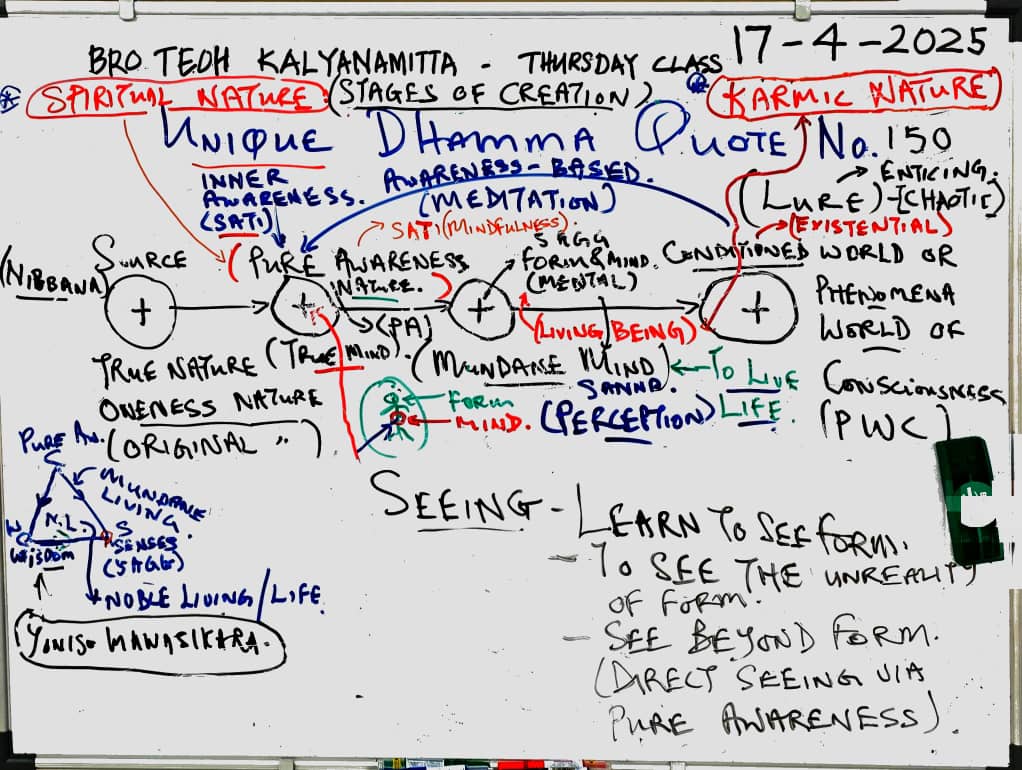 17-4-2025
BRO TEOH KALYANAMITTA - THURSDAY CLASS
* SPIRITUAL NATURE: (STAGES OF CREATION) * KARMIC NATURE
UNIQUE DHAMMA QUOTE No. 150
INNER AWARENESS. (SATI)
AWARENESS-BASED. (MEDITATION)
→ ENTICING.
(LURE)-[CHAOTIC]
→ SATI (MINDFULNESS).
→ (EXISTENTIAL)
(NIBBANA) SOURCE
(PURE AWARENESS
NATURE. )
5AGG
FORM & MIND.
(MENTAL)
CONDITIONED WORLD OR
PHENOMENA
WORLD OF
CONSCIOUSNESS
(PWC)
+ + + +
→(PA)
(LIVING BEING)
TRUE NATURE
(TRUE MIND).
ONENESS NATURE
(ORIGINAL ")
(MUNDANE MIND) ← TO LIVE
LIFE.
SANNA.
(PERCEPTION)
← FORM
← MIND.
PURE AW.
MUNDANE
LIVING
N.L.
S
SENSES
(5AGG)
WISDOM
NOBLE LIVING/LIFE
YONISO MANASIKARA.
SEEING - LEARN TO SEE FORM.
- TO SEE THE UNREALITY
OF FORM.
- SEE BEYOND FORM.
(DIRECT SEEING VIA
PURE AWARENESS).